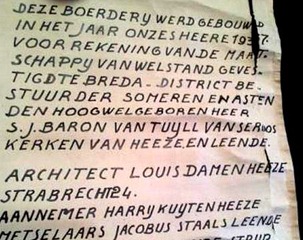 DEZE BOERDERY WERD GEBOUWD
IN HET JAAR ONZES HEERE 1937.
VOOR REKENING VAN DE MAAT-
SCHAPPY VAN WELSTAND GEVES-
TIGD TE BREDA.- DISTRICT BE-
STUURDER SOMEREN EN ASTEN
DEN HOOGWELGEBOREN HEER
S.J. BARON VAN TUYLL VAN SEROOS
KERKEN VAN HEEZE, EN LEENDE.
ARCHITECT LOUIS DAMEN HEEZE
STRABRECHT 24.
AANNEMER HARRY KUYTEN HEEZE
METSELAARS JACOBUS STAALS LEENDE